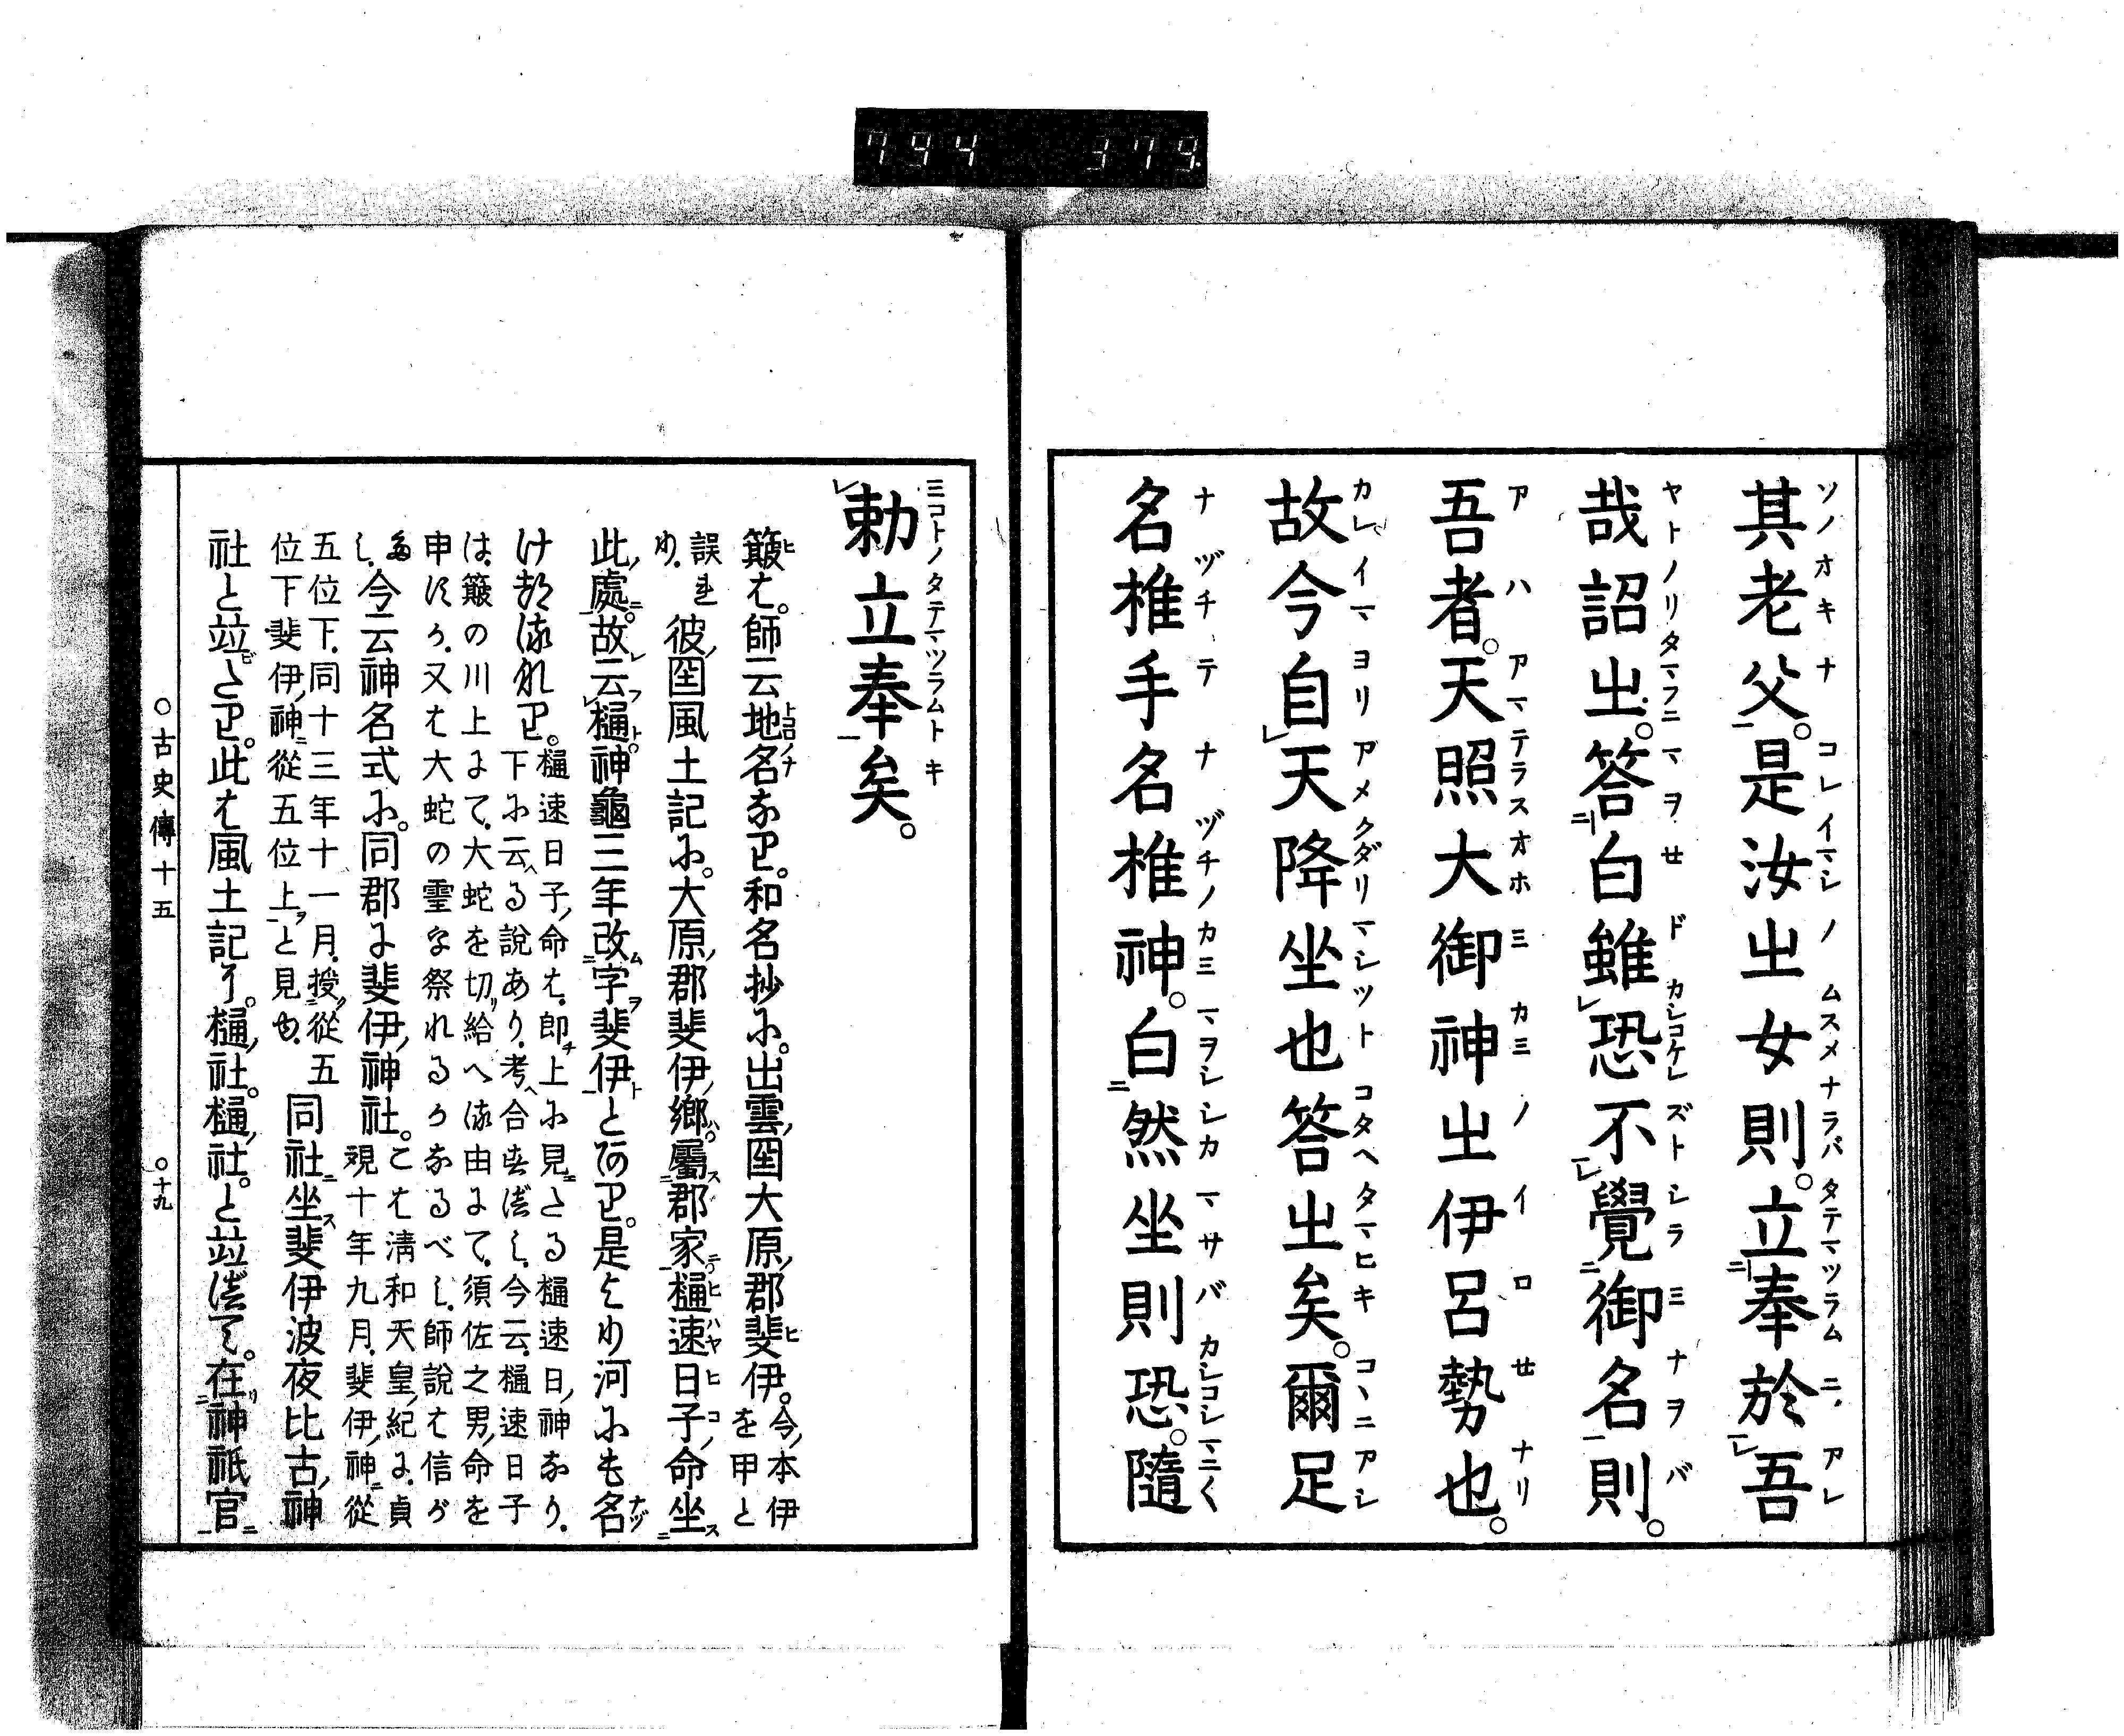 794 379
其老父。是汝之女則。立奉於吾
哉詔之。答白雖恐不覺御名則。
吾者。天照大御神之伊呂勢也。
故今自天降坐也答之矣。爾足
名椎手名椎神。白然坐則恐。隨
勅立奉矣。
簸は。師云地名なり。和名抄に。出雲國大原郡斐伊。今本伊を甲と
誤れり。彼國風土記に。大原郡斐伊鄉。屬郡家樋速日子命坐
此處。故云樋。神龜三年改字斐伊とあり。是より河にも名
けたるなり。樋速日子命は。卽上に見えたる樋速日神なり。
下に云る說あり。考合すべし。今云。樋速日子
は。簸の川上にて。大蛇を切給へる由にて。須佐之男命を
申すか。又は大蛇の靈を祭れるかなるべし。師說は信が
たし。今云神名式に。同郡に斐伊神社。こは淸和天皇紀に。貞
觀十年九月。斐伊神從
五位下。同十三年十一月。授從五
位下斐伊神從五位上と見ゆ。同社坐斐伊波夜比古神
社と竝びたり。此は風土記に。樋社。樋社。と竝べて。在神祇官
○古史傳十五 ○十九